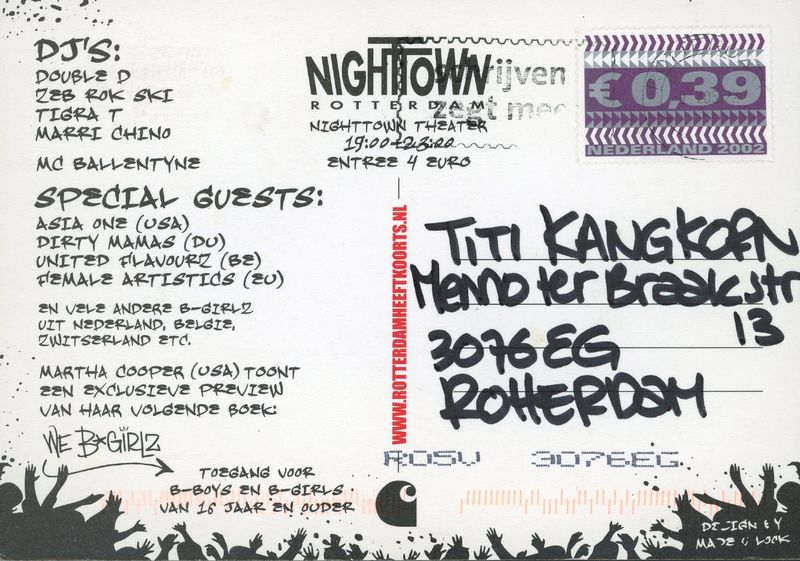 DJ'S:
DOUBLE D
ZEB ROK SKI
TIGRA T
MARRI CHINO
MC BALLENTYNE
SPECIAL GUESTS:
ASIA ONE (USA)
DIRTY MAMAS (DU)
UNITED FLAVOURZ (BE)
FEMALE ARTISTICS (EU)
EN VELE ANDERE B-GIRLZ
UIT NEDERLAND, BELGIE,
ZWITSERLAND ETC.
MARTHA COOPER (USA) TOONT
EEN EXCLUSIEVE PREVIEW
VAN HAAR VOLGENDE BOEK:
WE B*GIRLZ
TOEGANG VOOR
B-BOYS EN B-GIRLS
VAN 16 JAAR EN OUDER
NIGHTTOWN
ROTTERDAM
NIGHTTOWN THEATER
19:00-23:00
ENTREE 4 EURO
WWW.ROTTERDAMHEEFTKOORTS.NL
schrijven
zegt mee
€ 0,39
NEDERLAND 2002
TITI KANGKOEN
Menno ter Braakstr
13
3076EG
ROTTERDAM
ROSV 3076EG
DESIGN BY
MADE U LOOK